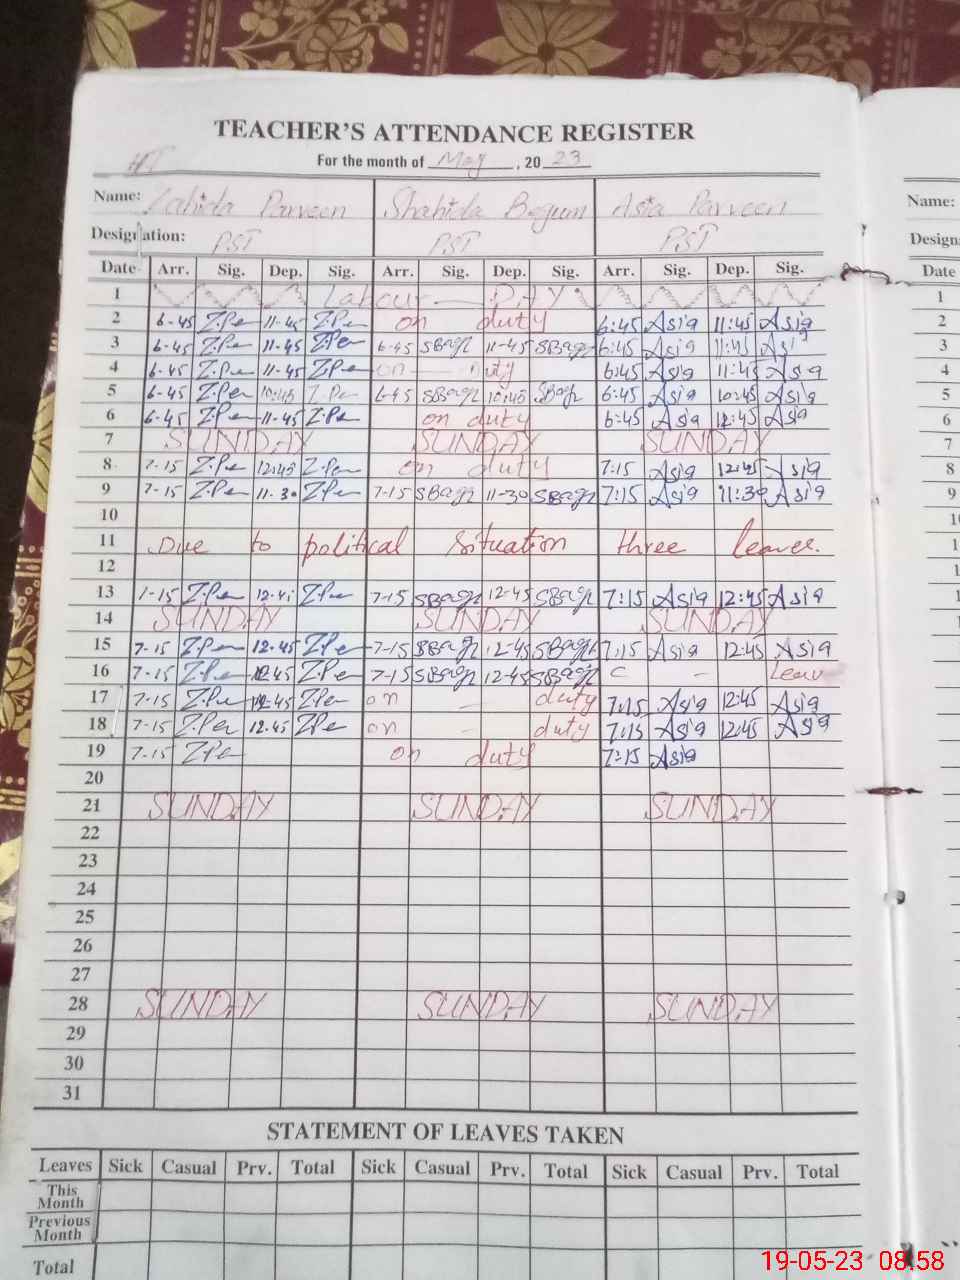 TEACHER'S ATTENDANCE REGISTER
HT For the month of May, 2023
Name: Zahida Parveen Shahida Begum Asia Parveen Name:
Designation: PST PST PST Design
Date Arr. Sig. Dep. Sig. Arr. Sig. Dep. Sig. Arr. Sig. Dep. Sig. Date
1 Labour DAY 1
2 6-45 Z.Per 11-45 Z.Per on duty 6:45 Asia 11:45 Asia 2
3 6-45 Z.Per 11-45 Z.Per 6-45 SBegn 11-45 SBegn 6:45 Asia 11:45 Asia 3
4 6-45 Z.Per 11-45 Z.Per on duty 6:45 Asia 11:45 Asia 4
5 6-45 Z.Per 10:45 Z.Per 6-45 SBegn 10:45 SBegn 6:45 Asia 10:45 Asia 5
6 6-45 Z.Per 11-45 Z.Per on duty 6:45 Asia 12:45 Asia 6
7 SUNDAY SUNDAY SUNDAY 7
8 7-15 Z.Per 12:45 Z.Per on duty 7:15 Asia 12:45 Asia 8
9 7-15 Z.Per 11-30 Z.Per 7-15 SBegn 11-30 SBegn 7:15 Asia 11:30 Asia 9
10
11 Due to political situation three leaves.
12
13 7-15 Z.Per 12-45 Z.Per 7-15 SBegn 12-45 SBegn 7:15 Asia 12:45 Asia
14 SUNDAY SUNDAY SUNDAY
15 7-15 Z.Per 12.45 Z.Per 7-15 SBegn 12-45 SBegn 7:15 Asia 12:45 Asia
16 7-15 Z.Per 12.45 Z.Per 7-15 SBegn 12-45 SBegn C - Leav
17 7-15 Z.Per 12-45 Z.Per on - duty 7:15 Asia 12:45 Asia
18 7-15 Z.Per 12.45 Z.Per on - duty 7:15 Asia 12:45 Asia
19 7-15 Z.Per on duty 7:15 Asia
20
21 SUNDAY SUNDAY SUNDAY
22
23
24
25
26
27
28 SUNDAY SUNDAY SUNDAY
29
30
31
STATEMENT OF LEAVES TAKEN
Leaves Sick Casual Prv. Total Sick Casual Prv. Total Sick Casual Prv. Total
This Month
Previous Month
Total
19-05-23 08:58